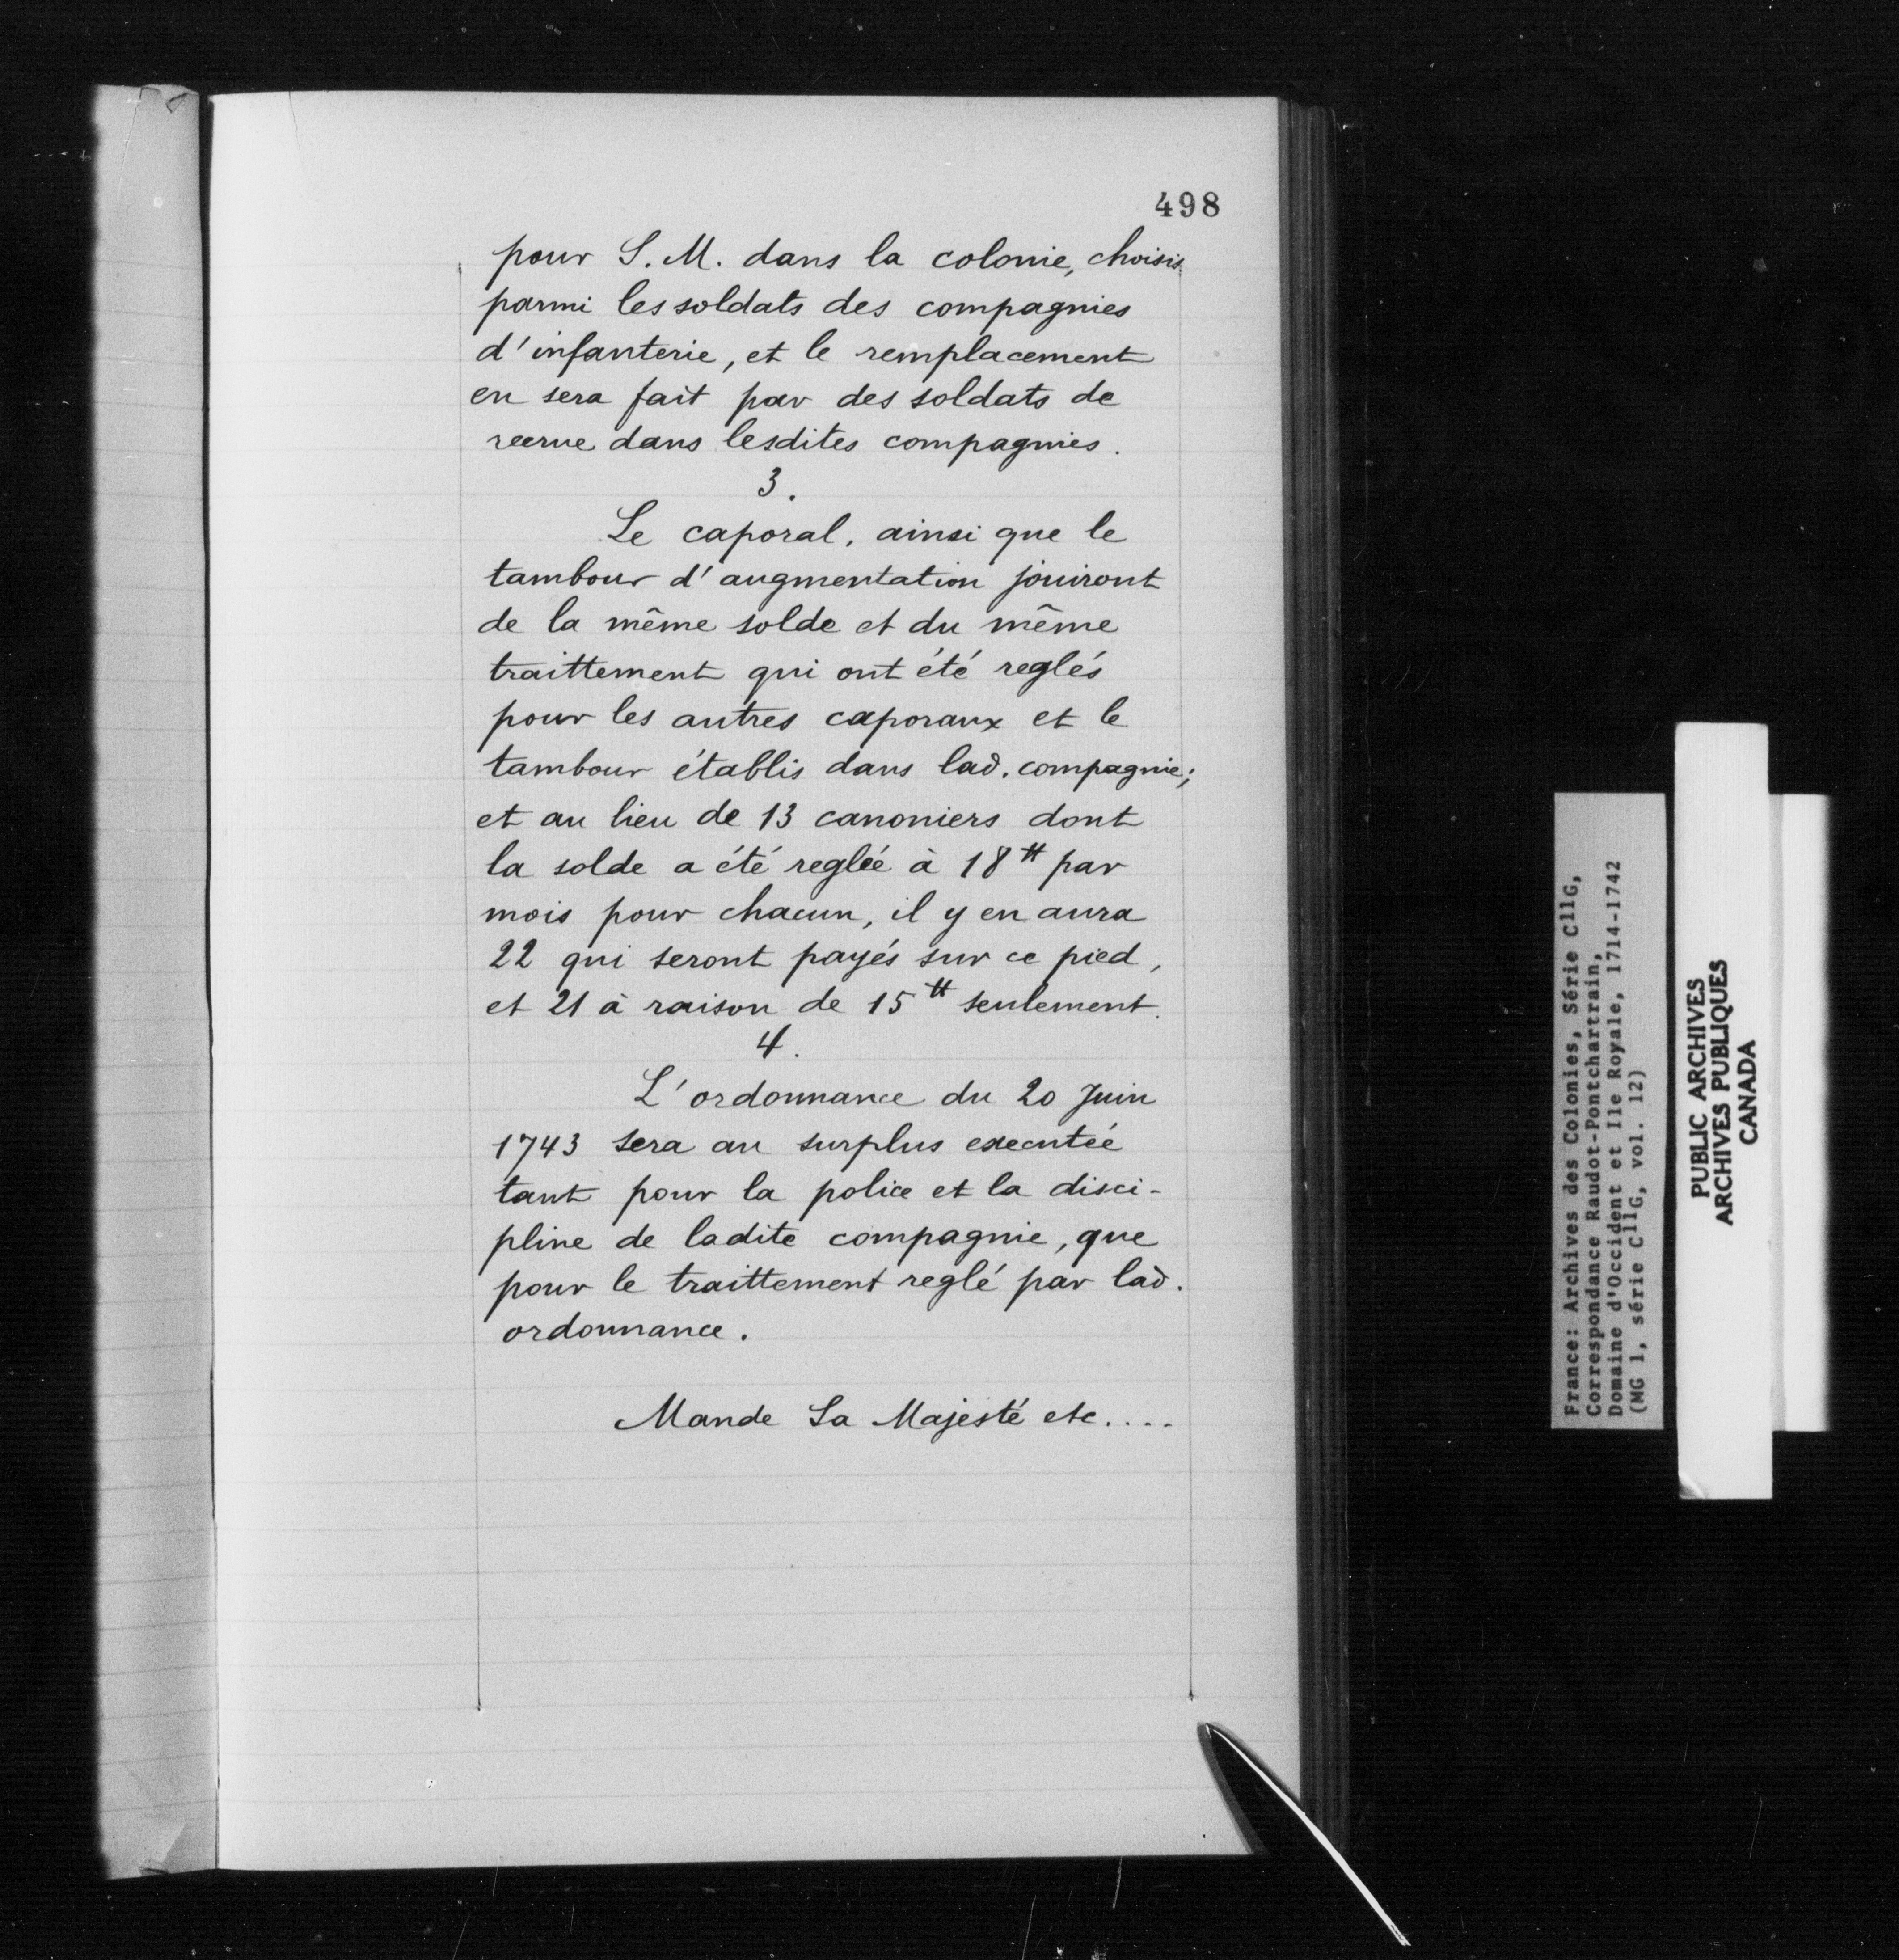 498
pour S. M. dans la colonie, choisis
parmi les soldats des compagnies
d'infanterie, et le remplacement
en sera fait par des soldats de
recrue dans lesdites compagnies.
3.
Le caporal, ainsi que le
tambour d'augmentation jouiront
de la même solde et du même
traittement qui ont été reglés
pour les autres caporaux et le
tambour établis dans lad. compagnie;
et au lieu de 13 canoniers dont
la solde a été reglée à 18tt par
mois pour chacun, il y en aura
22 qui seront payés sur ce pied,
et 21 à raison de 15tt seulement.
4.
L'ordonnance du 20 Juin
1743 sera au surplus executée
tant pour la police et la disci-
pline de ladite compagnie, que
pour le traittement reglé par lad.
ordonnance.
Mande Sa Majesté etc....
France: Archives des Colonies, Série C11G,
Correspondance Raudot-Pontchartrain,
Domaine d'Occident et Ile Royale, 1714-1742
(MG 1, série C11G, vol. 12)
PUBLIC ARCHIVES
ARCHIVES PUBLIQUES
CANADA